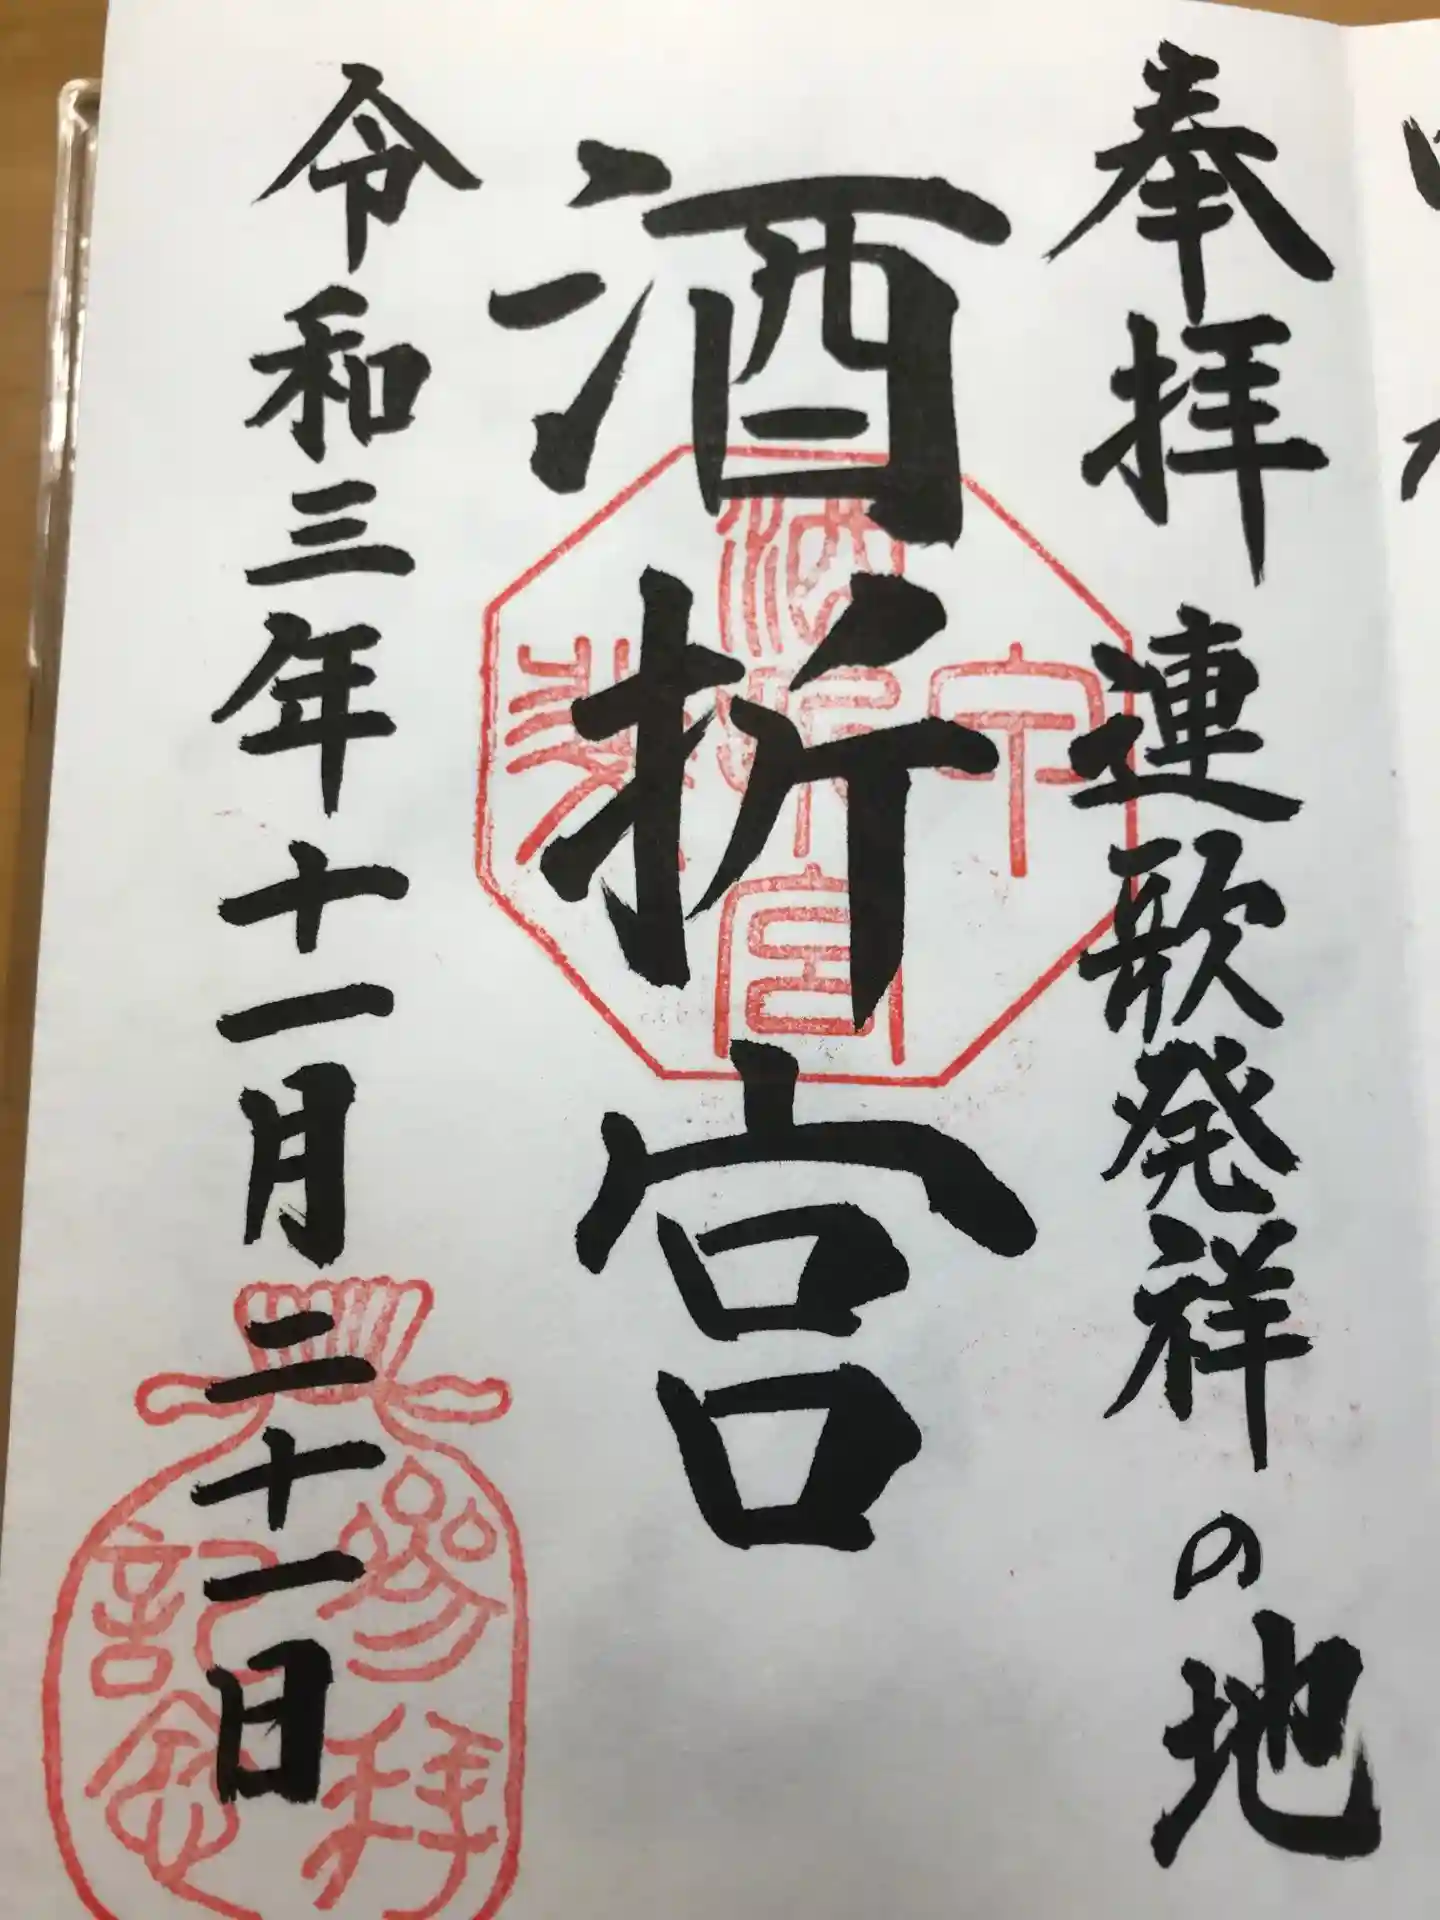 奉拝 連歌発祥の地
酒折宮
令和三年十一月二十一日
酒折宮
参拝
記念